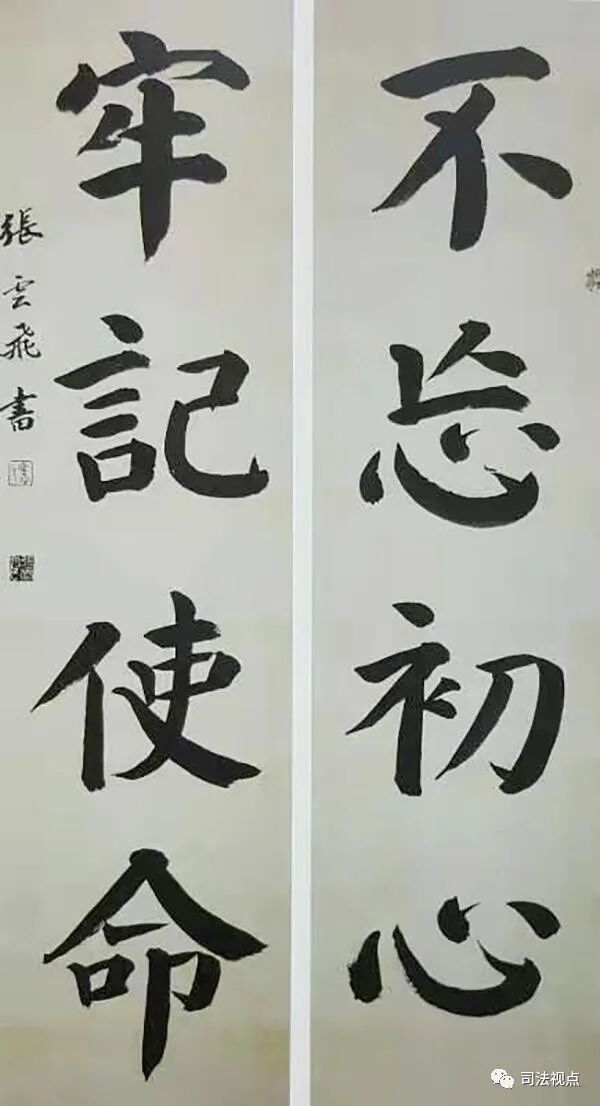 不忘初心
牢記使命
張雲飛書
司法视点